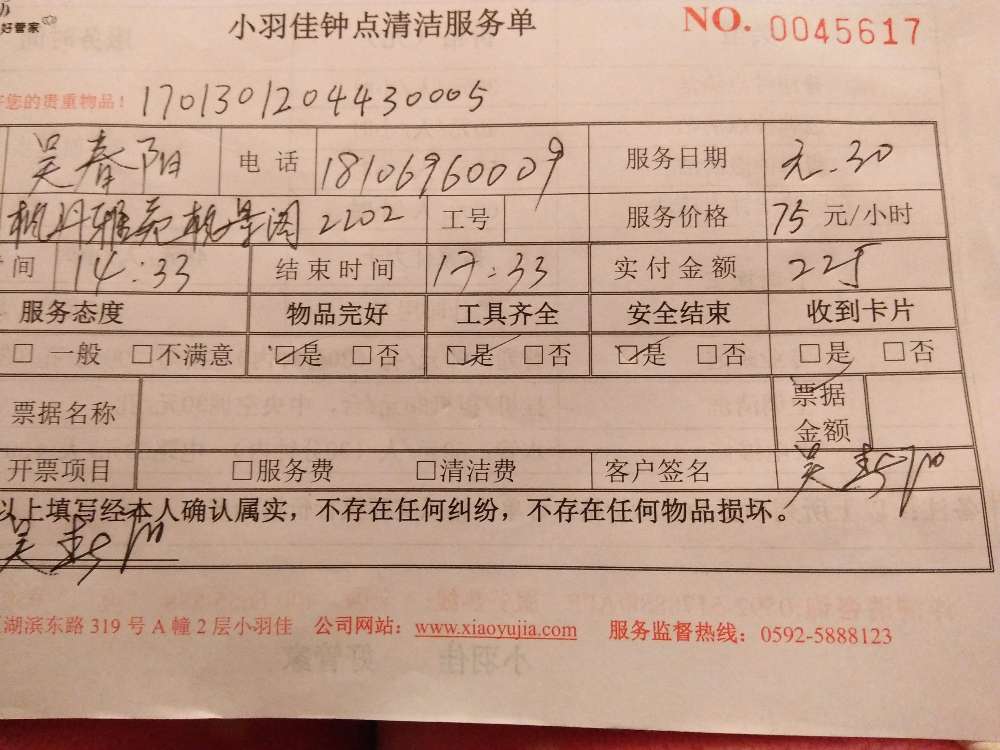 好管家
小羽佳钟点清洁服务单
NO. 0045617
您的贵重物品！ 1701301204430005
吴春阳 电话 18106960009 服务日期 元.30
枫丹雅苑枫景阁2202 工号 服务价格 75 元/小时
间 14:33 结束时间 17:33 实付金额 225
服务态度 物品完好 工具齐全 安全结束 收到卡片
□ 一般 □不满意 □是 □否 □是 □否 □是 □否 □是 □否
票据名称 票据金额
开票项目 □服务费 □清洁费 客户签名 吴
以上填写经本人确认属实，不存在任何纠纷，不存在任何物品损坏。
吴
湖滨东路 319 号 A 幢 2 层小羽佳 公司网站：www.xiaoyujia.com 服务监督热线：0592-5888123